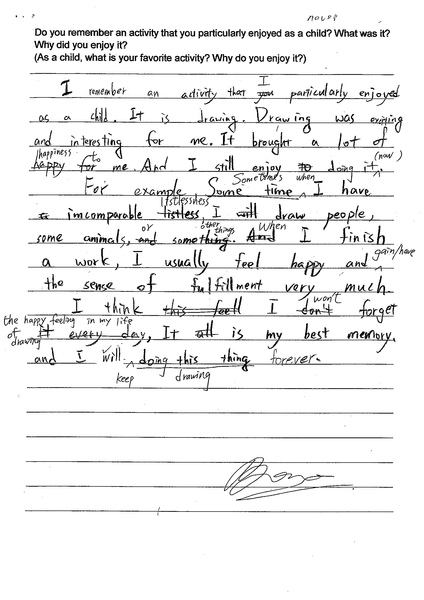 Do you remember an activity that you particularly enjoyed as a child? What was it?
Why did you enjoy it?
(As a child, what is your favorite activity? Why do you enjoy it?)
I
I remember an activity that you particularly enjoyed
as a child. It is drawing. Drawing was exciting
and interesting for me. It brought a lot of
happiness to (now)
happy for me. And I still enjoy to doing it,
Sometimes when
For example, Some time, I have
listlessness
incomparable listless, I will draw people,
or other things When
some animals, and something. And I finish
gain/have
a work, I usually feel happy and
the sense of fulfillment very much.
won't
I think this feell I don't forget
the happy feeling in my life
of drawing It every day, It all is my best memory.
and I will doing this thing forever.
keep drawing